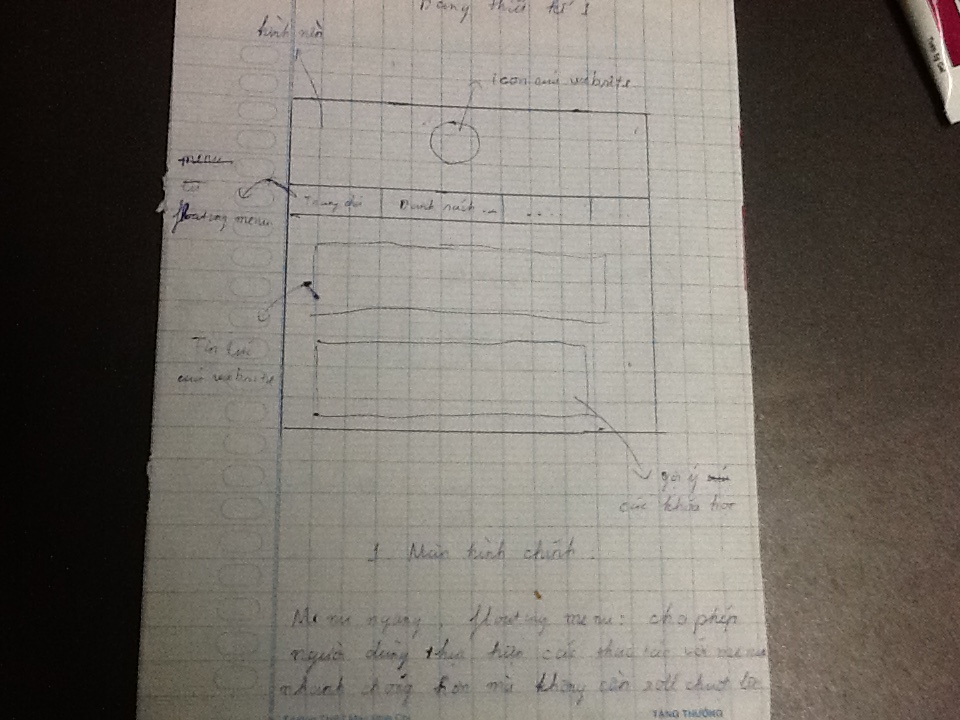 Dạng thiết kế 1
hình nền
icon của website
menu
từ
floating menu
Trang chủ
Danh sách ...
....
Tin tức
của website
gợi ý
các khóa học
1. Màn hình chính.
Menu ngang, floating menu: cho phép
người dùng thực hiện các thao tác với menu
nhanh chóng hơn mà không cần roll chuột lên
TĂNG THƯỞNG